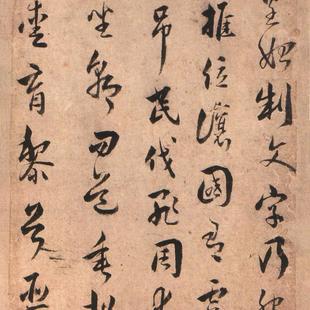 始制文字乃服
推位讓國有虞
吊民伐罪周發
坐朝問道垂拱
愛育黎首臣